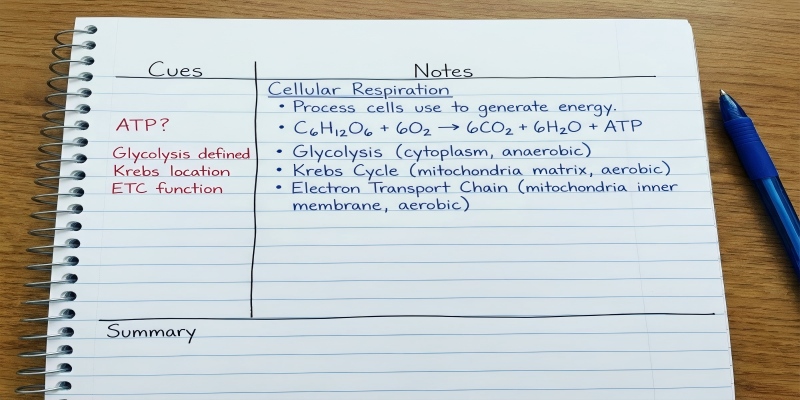 Cues
Notes
Cellular Respiration
• Process cells use to generate energy.
ATP?
• C₆H₁₂O₆ + 6O₂ → 6CO₂ + 6H₂O + ATP
Glycolysis defined
• Glycolysis (cytoplasm, anaerobic)
Krebs location
• Krebs Cycle (mitochondria matrix, aerobic)
ETC function
• Electron Transport Chain (mitochondria inner
membrane, aerobic)
Summary